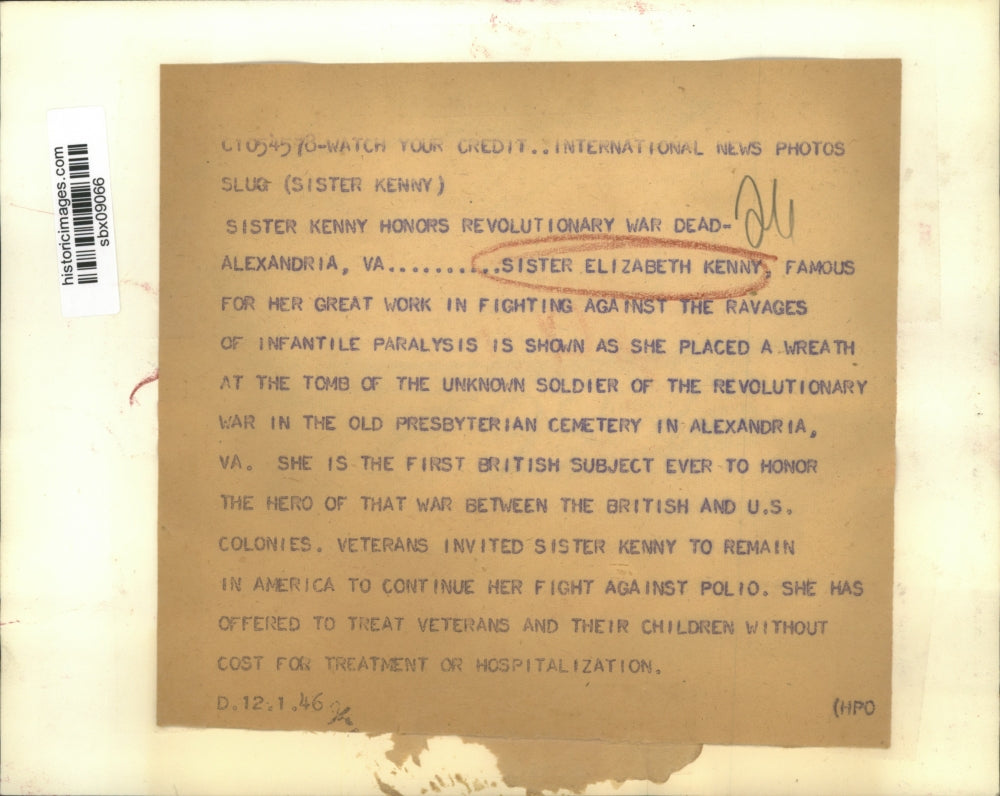 historicimages.com
sbx09066
CY054578-WATCH YOUR CREDIT..INTERNATIONAL NEWS PHOTOS
SLUG (SISTER KENNY)
SISTER KENNY HONORS REVOLUTIONARY WAR DEAD-
ALEXANDRIA, VA..........SISTER ELIZABETH KENNY, FAMOUS
FOR HER GREAT WORK IN FIGHTING AGAINST THE RAVAGES
OF INFANTILE PARALYSIS IS SHOWN AS SHE PLACED A WREATH
AT THE TOMB OF THE UNKNOWN SOLDIER OF THE REVOLUTIONARY
WAR IN THE OLD PRESBYTERIAN CEMETERY IN ALEXANDRIA,
VA. SHE IS THE FIRST BRITISH SUBJECT EVER TO HONOR
THE HERO OF THAT WAR BETWEEN THE BRITISH AND U.S.
COLONIES. VETERANS INVITED SISTER KENNY TO REMAIN
IN AMERICA TO CONTINUE HER FIGHT AGAINST POLIO. SHE HAS
OFFERED TO TREAT VETERANS AND THEIR CHILDREN WITHOUT
COST FOR TREATMENT OR HOSPITALIZATION.
D.12.1.46
(HPO